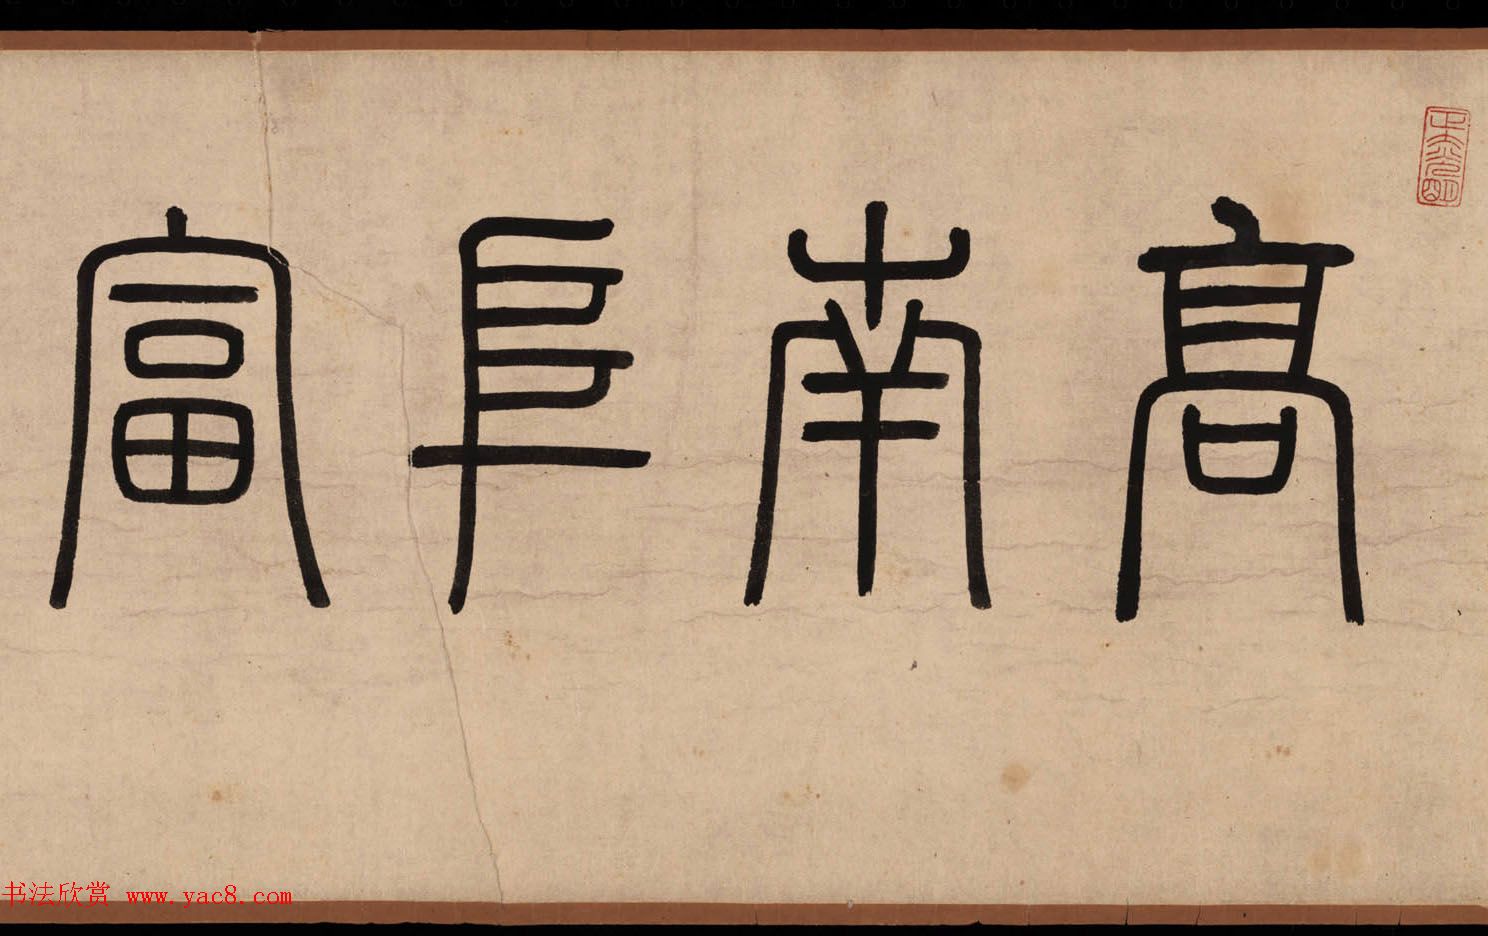 高南阜富
书法欣赏 www.yac8.com